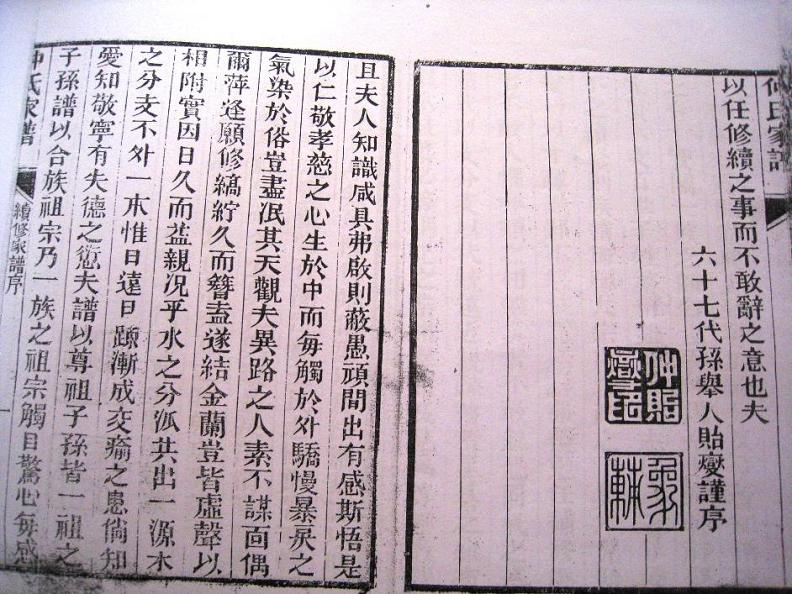 氏家譜
以任修續之事而不敢辭之意也夫
六十七代孫舉人貽燮謹序
仲貽燮印
且夫人知識咸具弗啟則蔽愚頑間出有感斯悟是
以仁敬孝慈之心生於中而每觸於外驕慢暴戾之
氣染於俗豈盡泯其天觀夫異路之人素不謀面偶
爾萍逢願修縞紵久而簪盍遂結金蘭豈皆虛聲以
相附實因日久而益親況乎水之分派共出一源木
之分支不外一本惟日遠日踈漸成交瘉之患倘知
愛知敬寧有失德之愆夫譜以尊祖子孫皆一祖之
子孫譜以合族祖宗乃一族之祖宗觸目驚心每感
仲氏家譜
續修家譜序